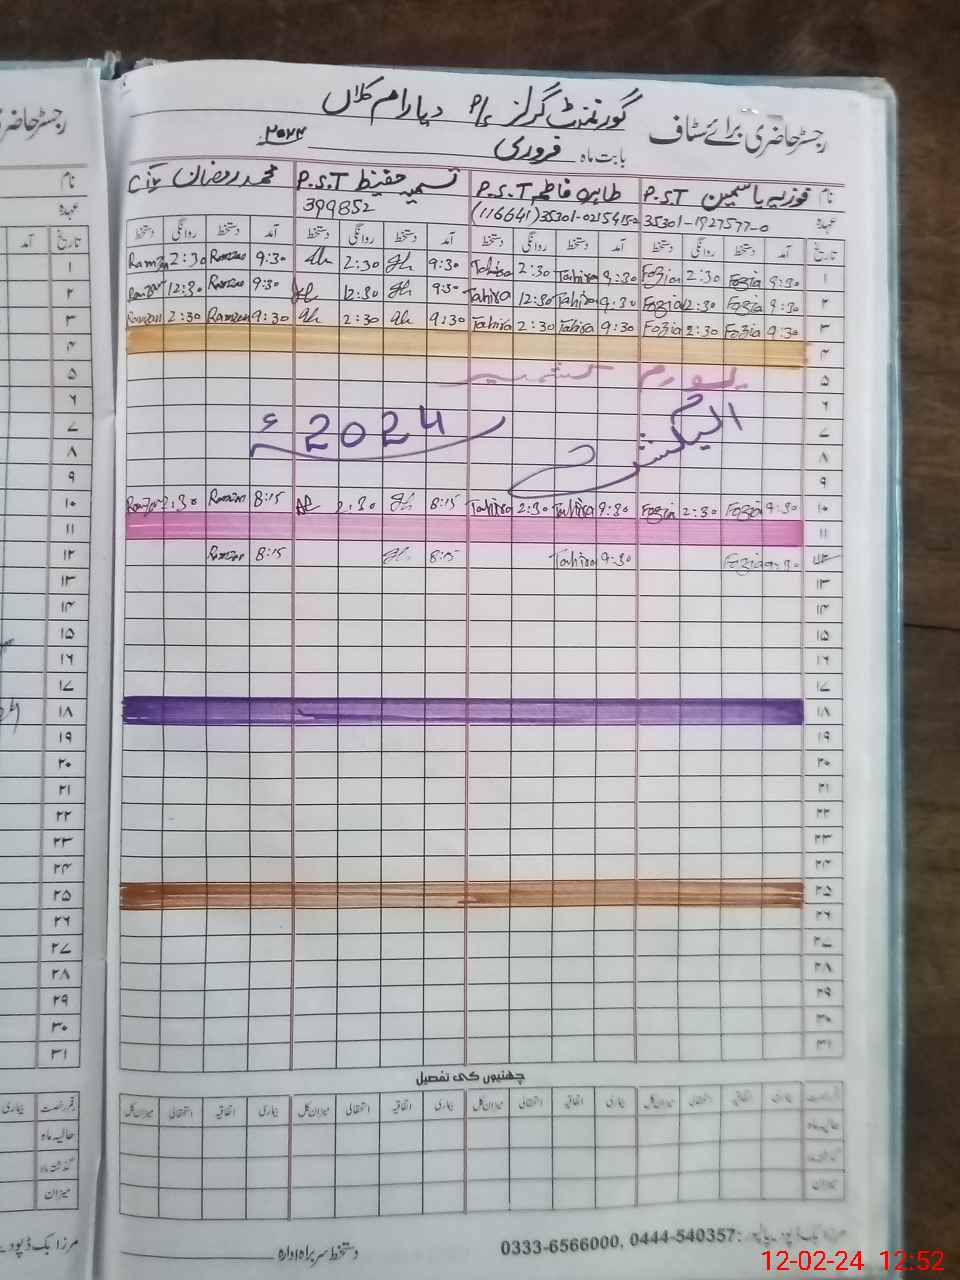 رجسٹر حاضری برائے سٹاف گورنمنٹ گرلز P/S دیارام کلاں
بابت ماہ فروری ۲۰۲۴
نام فوزیہ یاسمین P.S.T طاہرہ فاطمہ P.S.T تسمیہ حفیظ P.S.T محمد رمضان C.iv
عہدہ 35301-1927577-0 (116641) 35301-0215415-2 399852
تاریخ آمد دستخط روانگی دستخط آمد دستخط روانگی دستخط آمد دستخط روانگی دستخط آمد دستخط روانگی دستخط
۱ 9:30 Fozia 2:30 Fozia 9:30 Tahira 2:30 Tahira 9:30 2:30 9:30 Ramzan 2:30 Ramzan
۲ 9:30 Fozia 12:30 Fozia 9:30 Tahira 12:30 Tahira 9:30 12:30 9:30 Ramzan 12:30 Ramzan
۳ 9:30 Fozia 2:30 Fozia 9:30 Tahira 2:30 Tahira 9:30 2:30 9:30 Ramzan 2:30 Ramzan
۴
۵ یوم کشمیر
۶
۷ الیکشن 2024ء
۸
۹
۱۰ 9:30 Fozia 2:30 Fozia 9:30 Tahira 2:30 Tahira 8:15 2:30 8:15 Ramzan 2:30 Ramzan
۱۱
۱۲ 9:30 Fozia 9:30 Tahira 8:15 8:15 Ramzan
۱۳
۱۴
۱۵
۱۶
۱۷
۱۸
۱۹
۲۰
۲۱
۲۲
۲۳
۲۴
۲۵
۲۶
۲۷
۲۸
۲۹
۳۰
۳۱
چھٹیوں کی تفصیل
قسم رخصت بیماری اتفاقیہ استحقاقی میزان کل بیماری اتفاقیہ استحقاقی میزان کل بیماری اتفاقیہ استحقاقی میزان کل بیماری اتفاقیہ استحقاقی میزان کل
حالیہ ماہ
گذشتہ ماہ
میزان
0333-6566000, 0444-540357: دستخط سربراہ ادارہ
12-02-24 12:52
رجسٹر حاضری
نام
عہدہ
تاریخ آمد
مرزا بک ڈپو